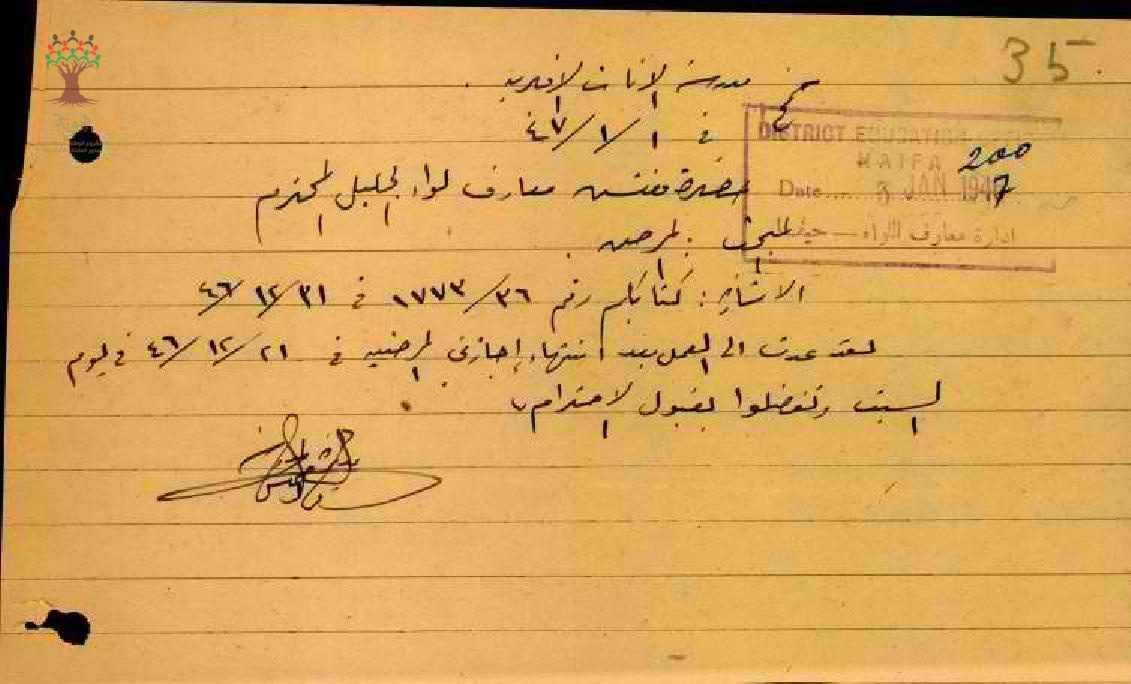 35
مدرسة الاناث الاميرية
في ١/١/٤٧
DISTRICT EDUCATION
HAIFA
200
Date..... 3 JAN 1947
ادارة معارف اللواء — حيفا
حضرة مفتش معارف لواء الجليل المحترم
المبحث : المرض
الاشارة : كتابكم رقم ١٧٧٣/٣٦ في ٤٦/١٢/٣١
لقد عدت الى العمل بعد انتهاء إجازتي المرضية في ٤٦/١٢/٢١ في يوم
السبت وتفضلوا بقبول الاحترام